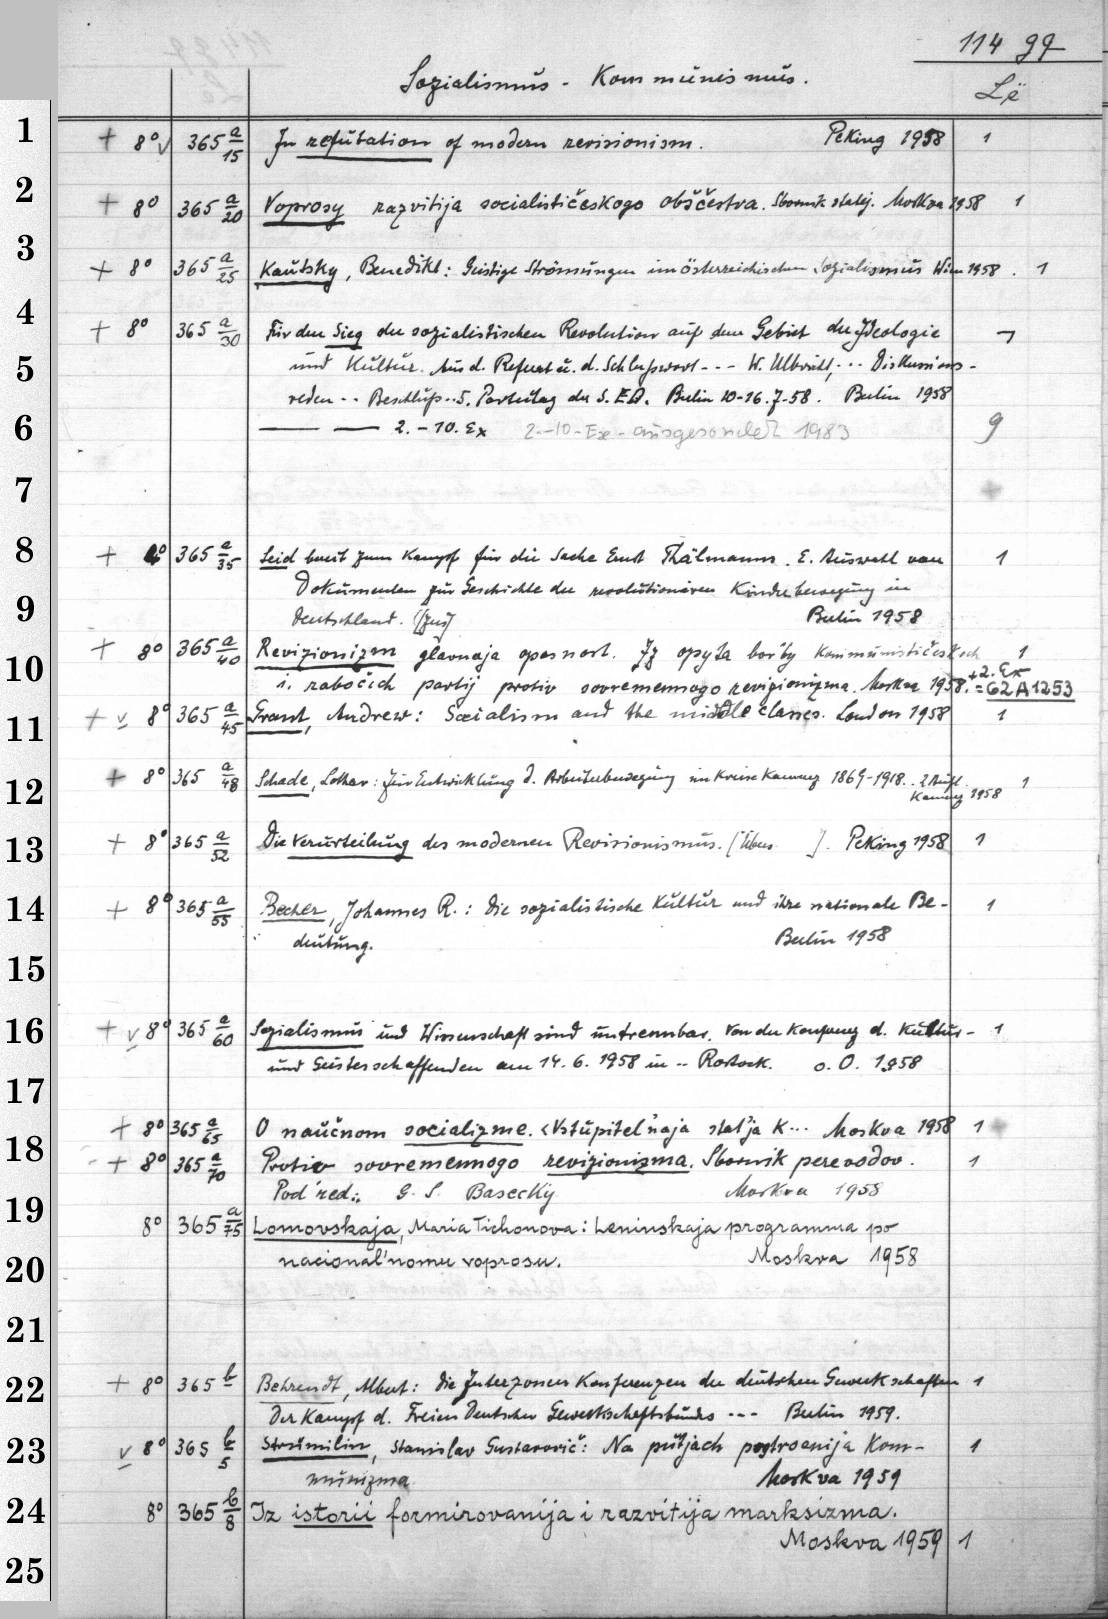 114 gg
Sozialismus - Kommunismus.
Lë
1 + 8° v 365 a/15 In refutation of modern revisionism. Peking 1958 1
2 + 8° 365 a/20 Voprosy razvitija socialističeskogo obščestva. Sbornik statej. Moskva 1958 1
3 + 8° 365 a/25 Kautsky, Benedikt: Geistige Strömungen im österreichischen Sozialismus Wien 1958. 1
4 + 8° 365 a/30 Für den Sieg der sozialistischen Revolution auf dem Gebiet der Ideologie
5 und Kultur. Aus d. Referat u. d. Schlußwort --- W. Ulbricht, -- Diskussions-
reden -- Beschluß -- 5. Parteitag der S.E.D. Berlin 10-16.7-58. Berlin 1958
6 — — 2.-10. Ex 2.-10-Ex-ausgesondert 1983 9
7 +
8 + 8° 365 a/35 Seid bereit zum Kampf für die Sache Ernst Thälmanns. E. Auswahl von 1
9 Dokumenten zur Geschichte der revolutionären Kinderbewegung in
Deutschland. Berlin 1958
10 + 8° 365 a/40 Revizionizm glavnaja opasnost. Iz opyta bor'by kommunističeskich 1
i. rabočich partij protiv sovremennogo revizionizma. Moskva 1958. +2. Ex = G2A1253
11 + v 8° 365 a/45 Grant, Andrew: Socialism and the middle classes. London 1958 1
12 + 8° 365 a/48 Schade, Lothar: Zur Entwicklung d. Arbeiterbewegung im Kreise Kamenz 1869-1918. 2. Aufl. 1
Kamenz 1958
13 + 8° 365 a/52 Die Verurteilung des modernen Revisionismus. [Übers ]. Peking 1958 1
14 + 8° 365 a/55 Becher, Johannes R.: Die sozialistische Kultur und ihre nationale Be- 1
deutung. Berlin 1958
15
16 + v 8° 365 a/60 Sozialismus und Wissenschaft sind untrennbar. Von der Konferenz d. Kultur- 1
und Geistesschaffenden am 14.6.1958 in -- Rostock. o. O. 1958
17
+ 8° 365 a/65 O naučnom socializme. <Vstupitel'naja stat'ja K... Moskva 1958 1
18 + 8° 365 a/70 Protiv sovremennogo revizionizma. Sbornik perevodov. 1
Pod red.: G. S. Basecky Moskva 1958
19 8° 365 a/75 Lomovskaja, Maria Tichonova: Leninskaja programma po
20 nacional'nomu voprosu. Moskva 1958
21
22 + 8° 365 b Behrendt, Albert: Die Interzonen Konferenzen der deutschen Gewerkschaften 1
Der Kampf d. Freien Deutschen Gewerkschaftsbundes --- Berlin 1959.
23 v 8° 365 b/5 Strumilin, Stanislav Gustavovič: Na putjach postroenija Kom- 1
munizma Moskva 1959
24 8° 365 b/8 Iz istorii formirovanija i razvitija marksizma.
Moskva 1959 1
25